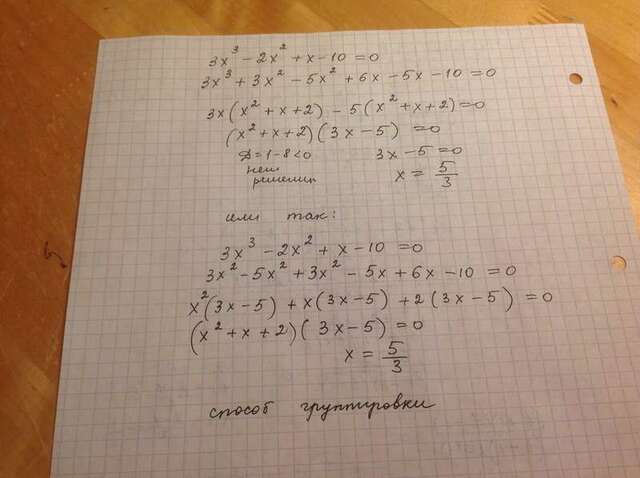 3x³ - 2x² + x - 10 = 0
3x³ + 3x² - 5x² + 6x - 5x - 10 = 0
3x(x² + x + 2) - 5(x² + x + 2) = 0
(x² + x + 2)(3x - 5) = 0
D = 1 - 8 < 0 3x - 5 = 0
нет
решения x = 5/3
или так:
3x³ - 2x² + x - 10 = 0
3x² - 5x² + 3x² - 5x + 6x - 10 = 0
x²(3x - 5) + x(3x - 5) + 2(3x - 5) = 0
(x² + x + 2)(3x - 5) = 0
x = 5/3
способ группировки